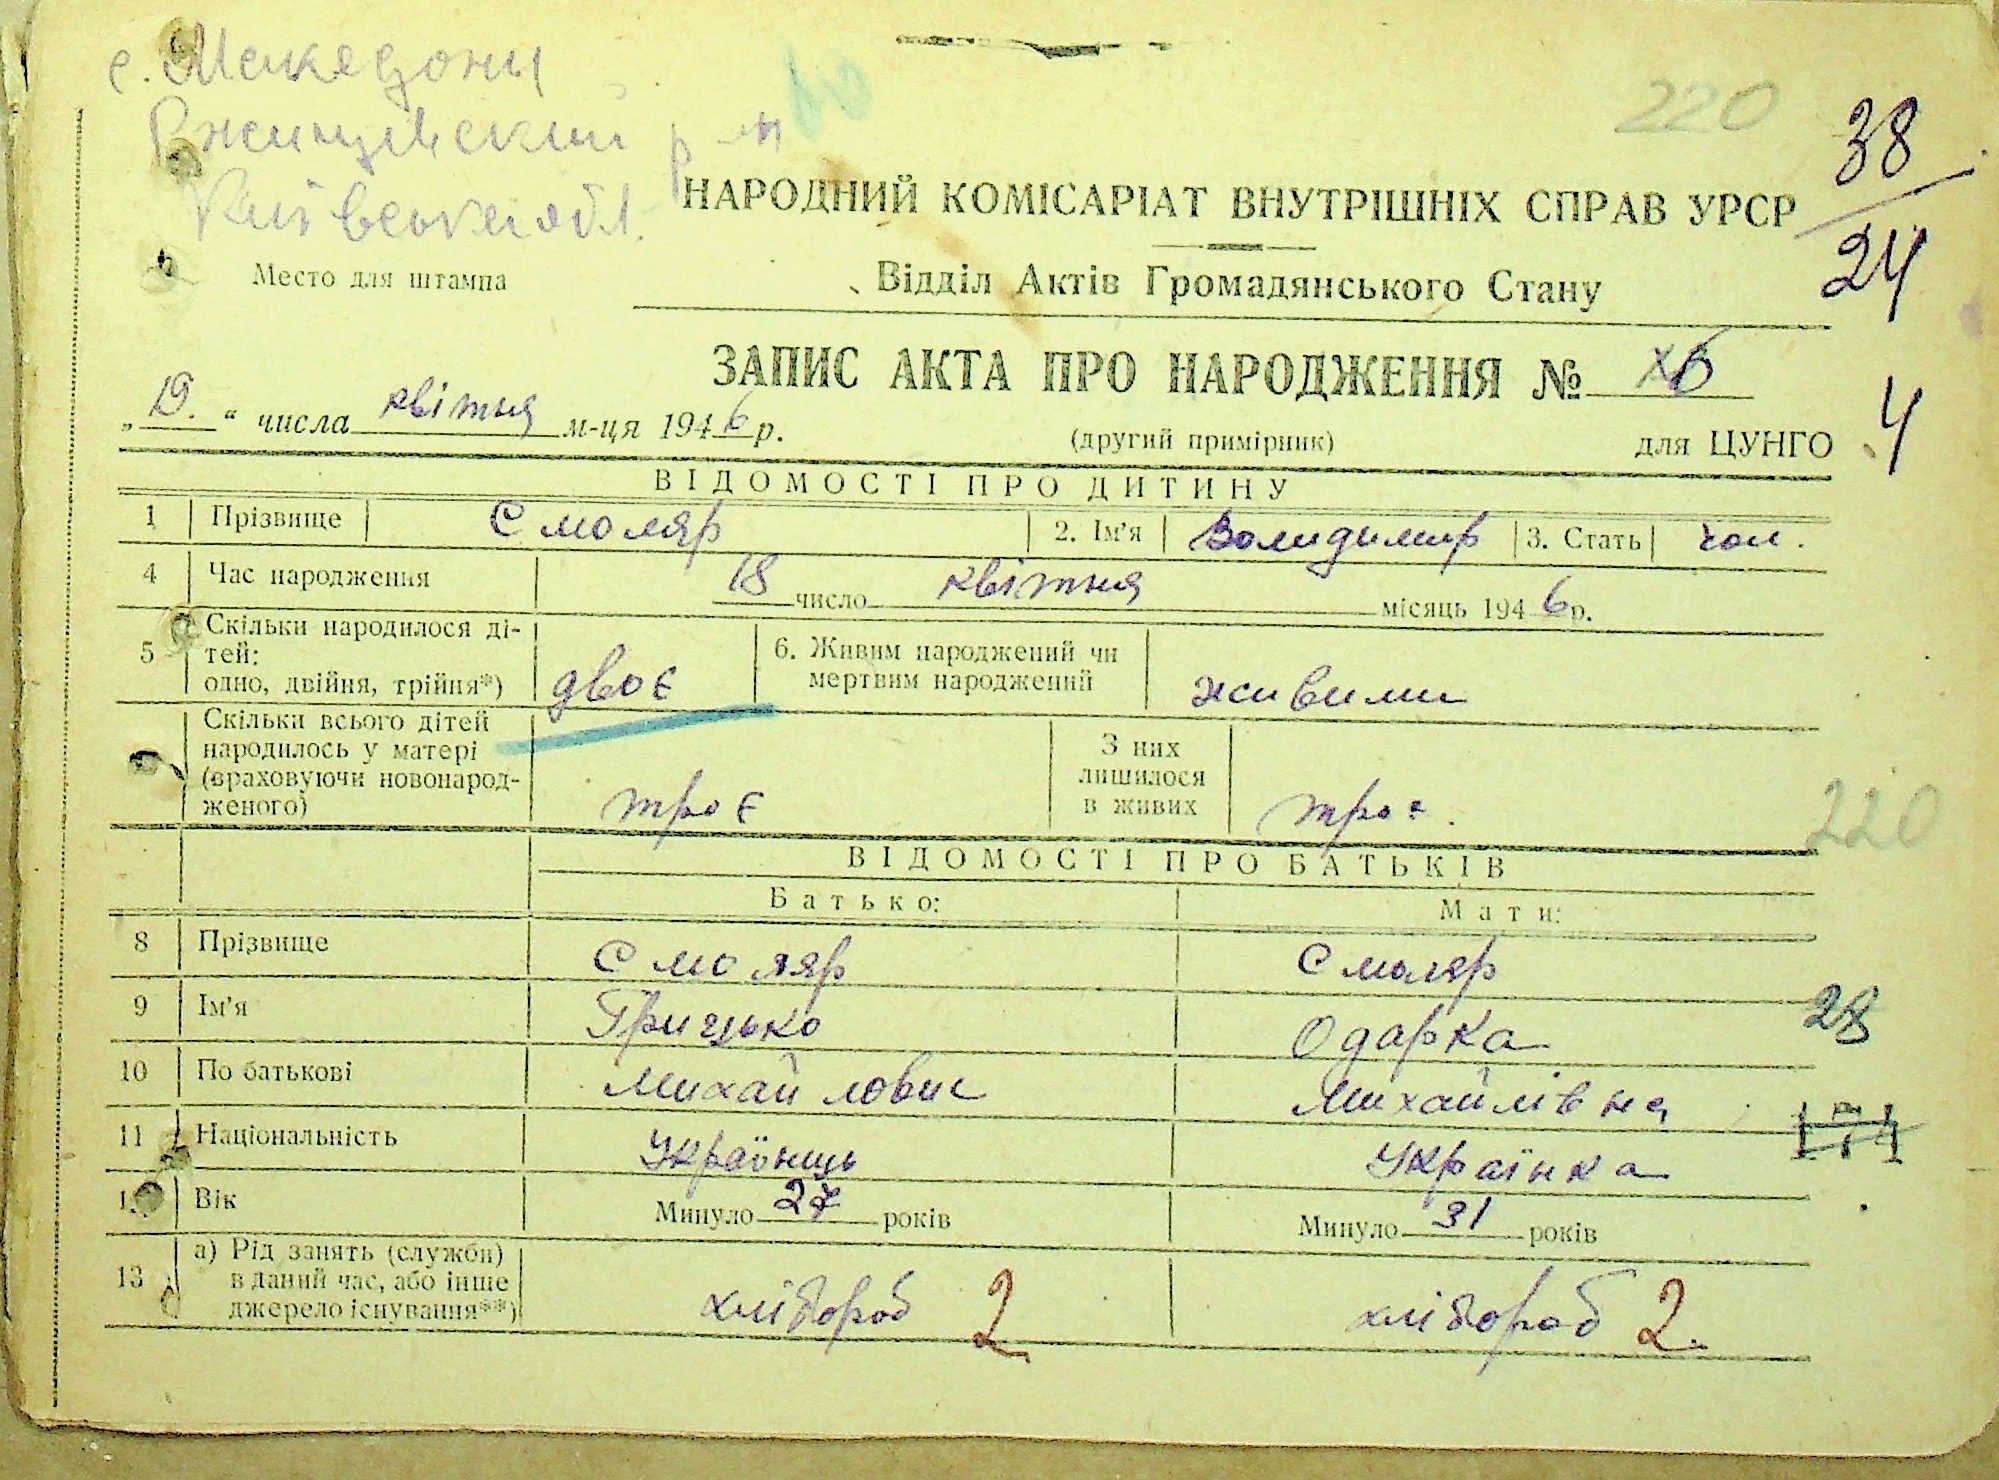 с. Македони
Ржищівський р-н
Київської обл.
220
38
24
НАРОДНИЙ КОМІСАРІАТ ВНУТРІШНІХ СПРАВ УРСР
Место для штампа
Відділ Актів Громадянського Стану
ЗАПИС АКТА ПРО НАРОДЖЕННЯ №
„19.“ числа квітня м-ця 1946 р.
(другий примірник)
для ЦУНГО
4
ВІДОМОСТІ ПРО ДИТИНУ
1 Прізвище Смоляр 2. Ім'я Володимир 3. Стать чол.
4 Час народження 18 число квітня місяць 1946 р.
5 Скільки народилося ді-
тей:
одно, двійня, трійня*) двоє
6. Живим народжений чи
мертвим народжений живими
Скільки всього дітей
народилось у матері
(враховуючи новонарод-
женого) троє
З них
лишилося
в живих троє.
220
ВІДОМОСТІ ПРО БАТЬКІВ
Батько: Мати:
8 Прізвище Смоляр Смоляр
9 Ім'я Грицько Одарка
28
10 По батькові Михайлович Михайлівна
11 Національність Українець Українка
12 Вік Минуло 27 років Минуло 31 років
13 а) Рід занять (служби)
в даний час, або інше
джерело існування**) хлібороб 2 хлібороб 2.